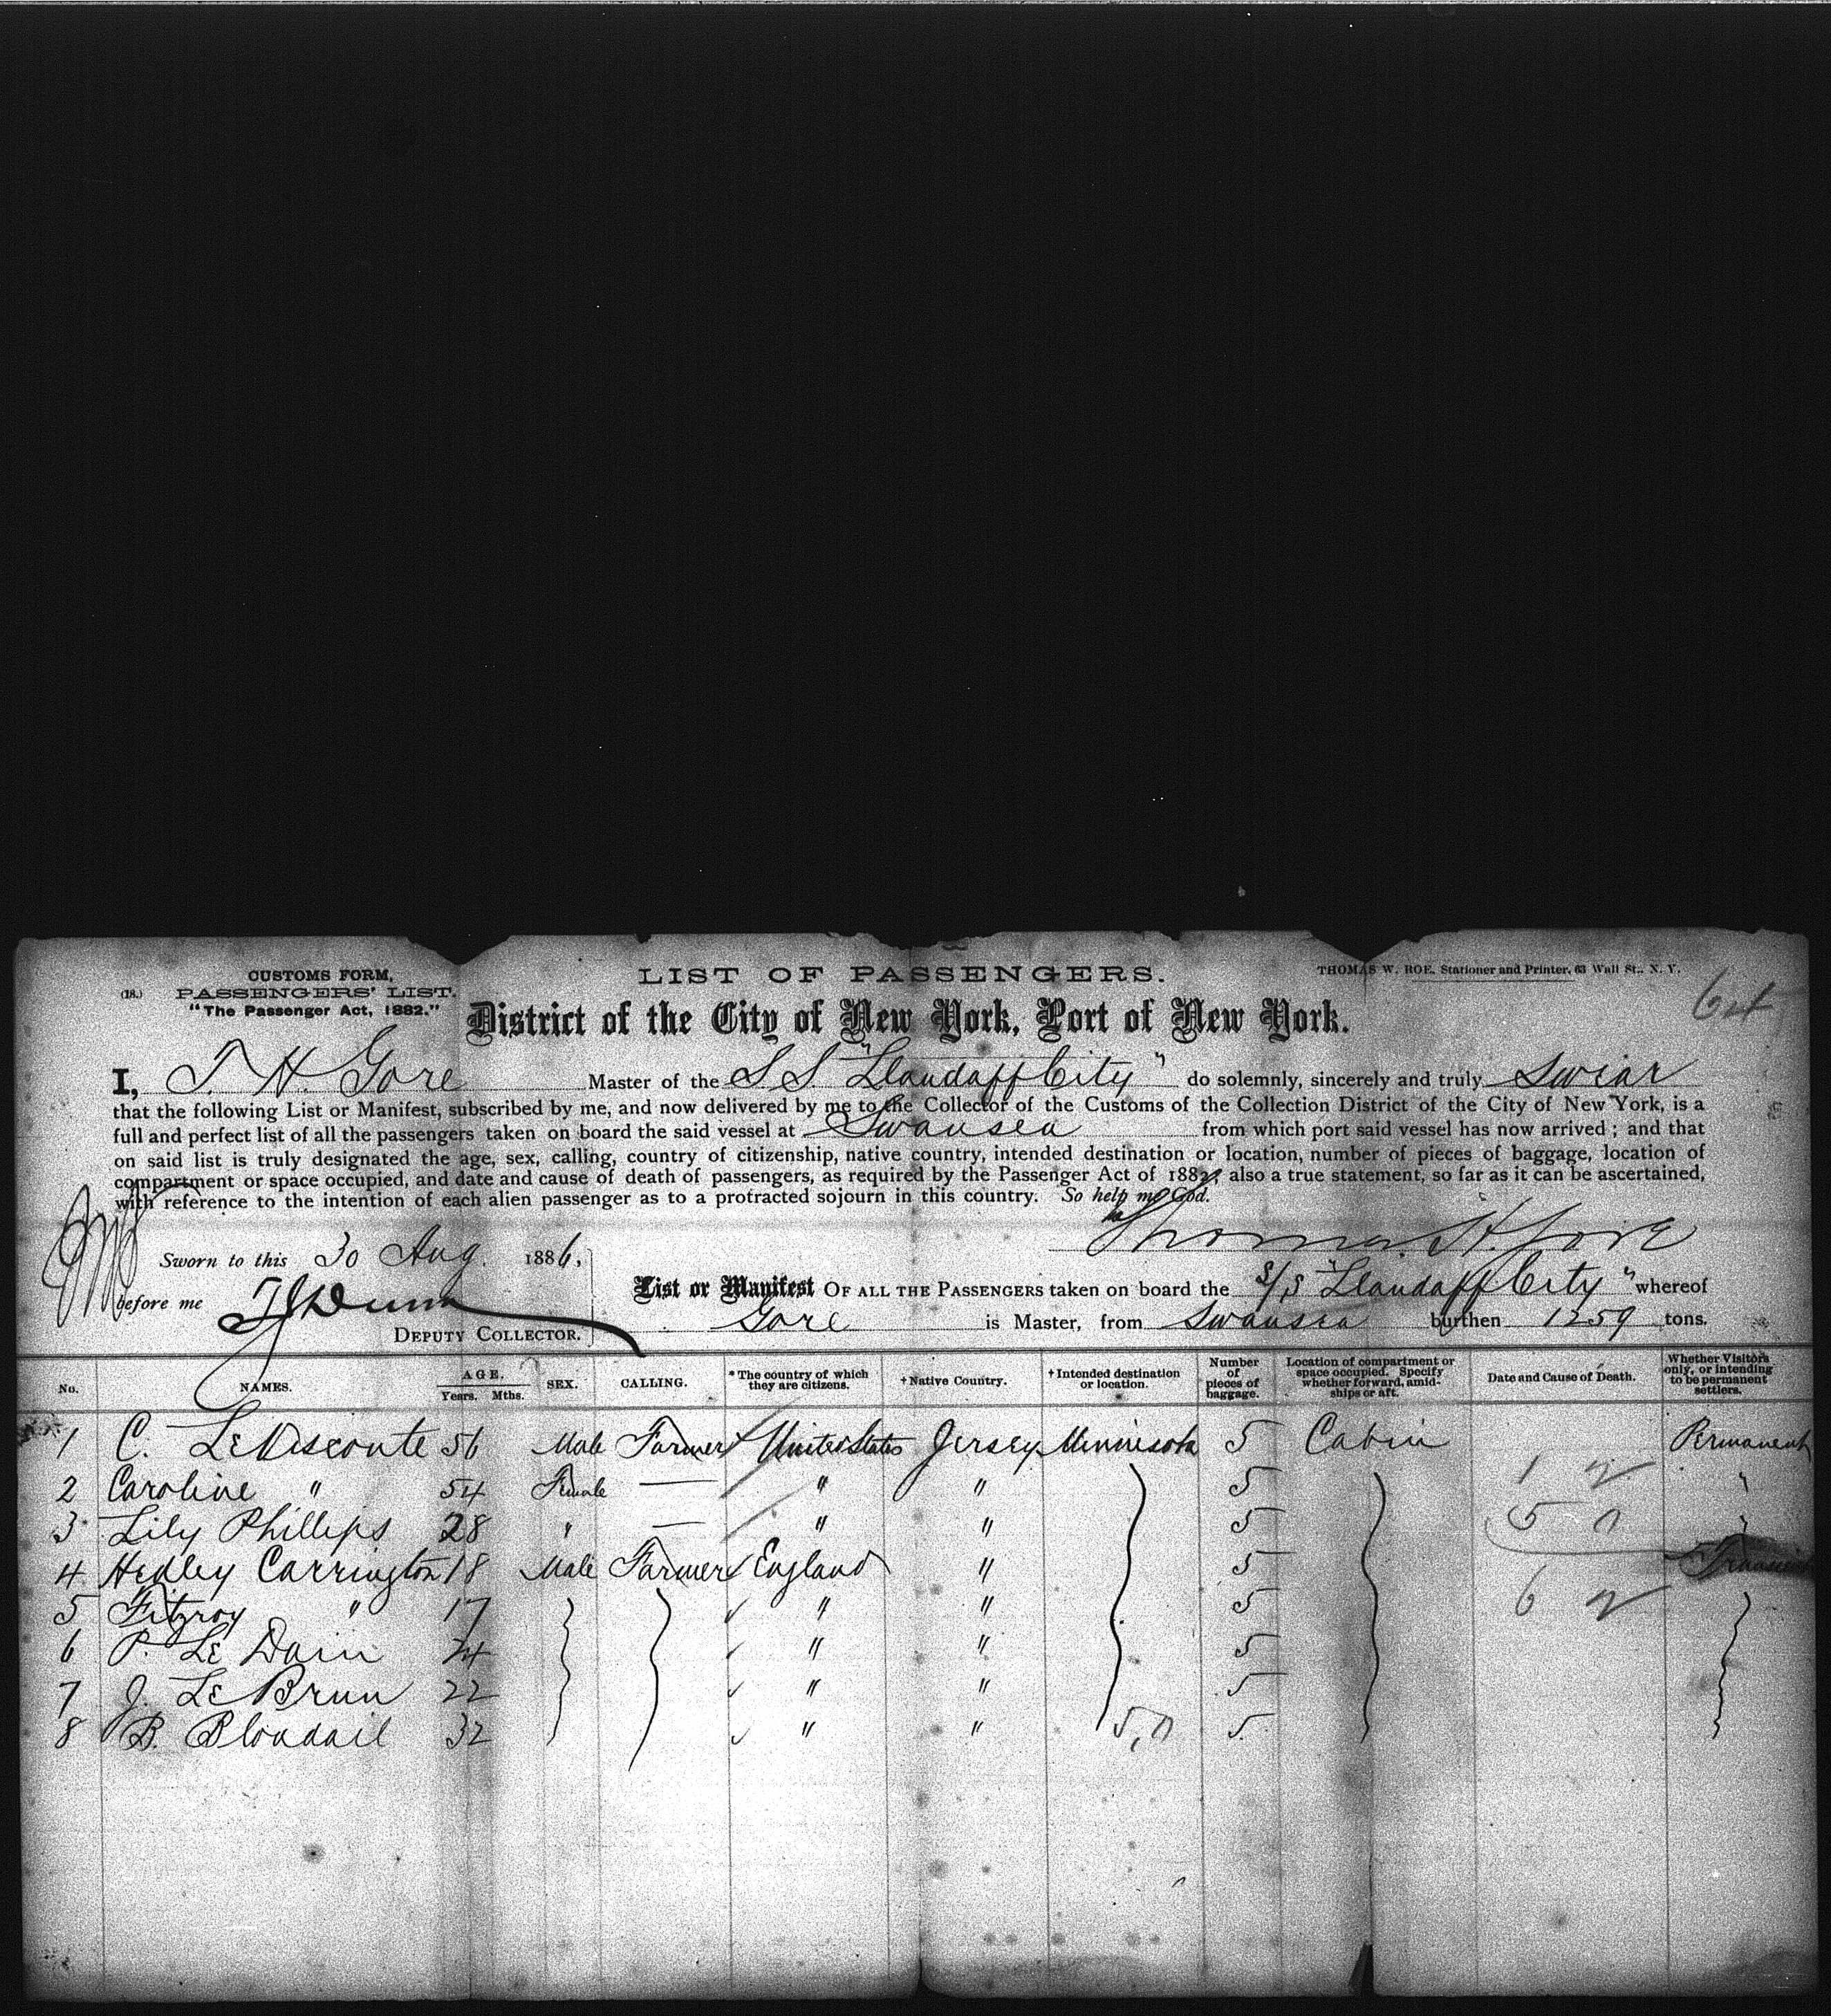 CUSTOMS FORM,
(18.) PASSENGERS' LIST.
"The Passenger Act, 1882."
LIST OF PASSENGERS.
THOMAS W. ROE, Stationer and Printer, 63 Wall St., N. Y.
64
District of the City of New York, Port of New York.
I, T. H. Gore Master of the S S. "Llandaff City" do solemnly, sincerely and truly swear
that the following List or Manifest, subscribed by me, and now delivered by me to the Collector of the Customs of the Collection District of the City of New York, is a
full and perfect list of all the passengers taken on board the said vessel at Swansea from which port said vessel has now arrived; and that
on said list is truly designated the age, sex, calling, country of citizenship, native country, intended destination or location, number of pieces of baggage, location of
compartment or space occupied, and date and cause of death of passengers, as required by the Passenger Act of 1882; also a true statement, so far as it can be ascertained,
with reference to the intention of each alien passenger as to a protracted sojourn in this country. So help me God.
Thomas H. Gore
Sworn to this 30 Aug. 1886,
before me TJDunn
DEPUTY COLLECTOR.
List or Manifest OF ALL THE PASSENGERS taken on board the S/S "Llandaff City" whereof
Gore is Master, from Swansea burthen 1259 tons.
No. NAMES. AGE. Years. Mths. SEX. CALLING. *The country of which they are citizens. †Native Country. †Intended destination or location. Number of pieces of baggage. Location of compartment or space occupied. Specify whether forward, amidships or aft. Date and Cause of Death. Whether Visitors only, or intending to be permanent settlers.
1 C. LeVisconte 56 Male Farmer United States Jersey Minnesota 5 Cabin Permanent
2 Caroline " 54 Female — " " 5 "
3 Lily Phillips 28 " — " " 5 "
4 Hedley Carrington 18 Male Farmer England " 5 Transient
5 Fitzroy " 17 " " 5
6 P. Le Dain 24 " " 5
7 J. LeBrun 22 " " 5
8 B. 32 " " 5,0 5